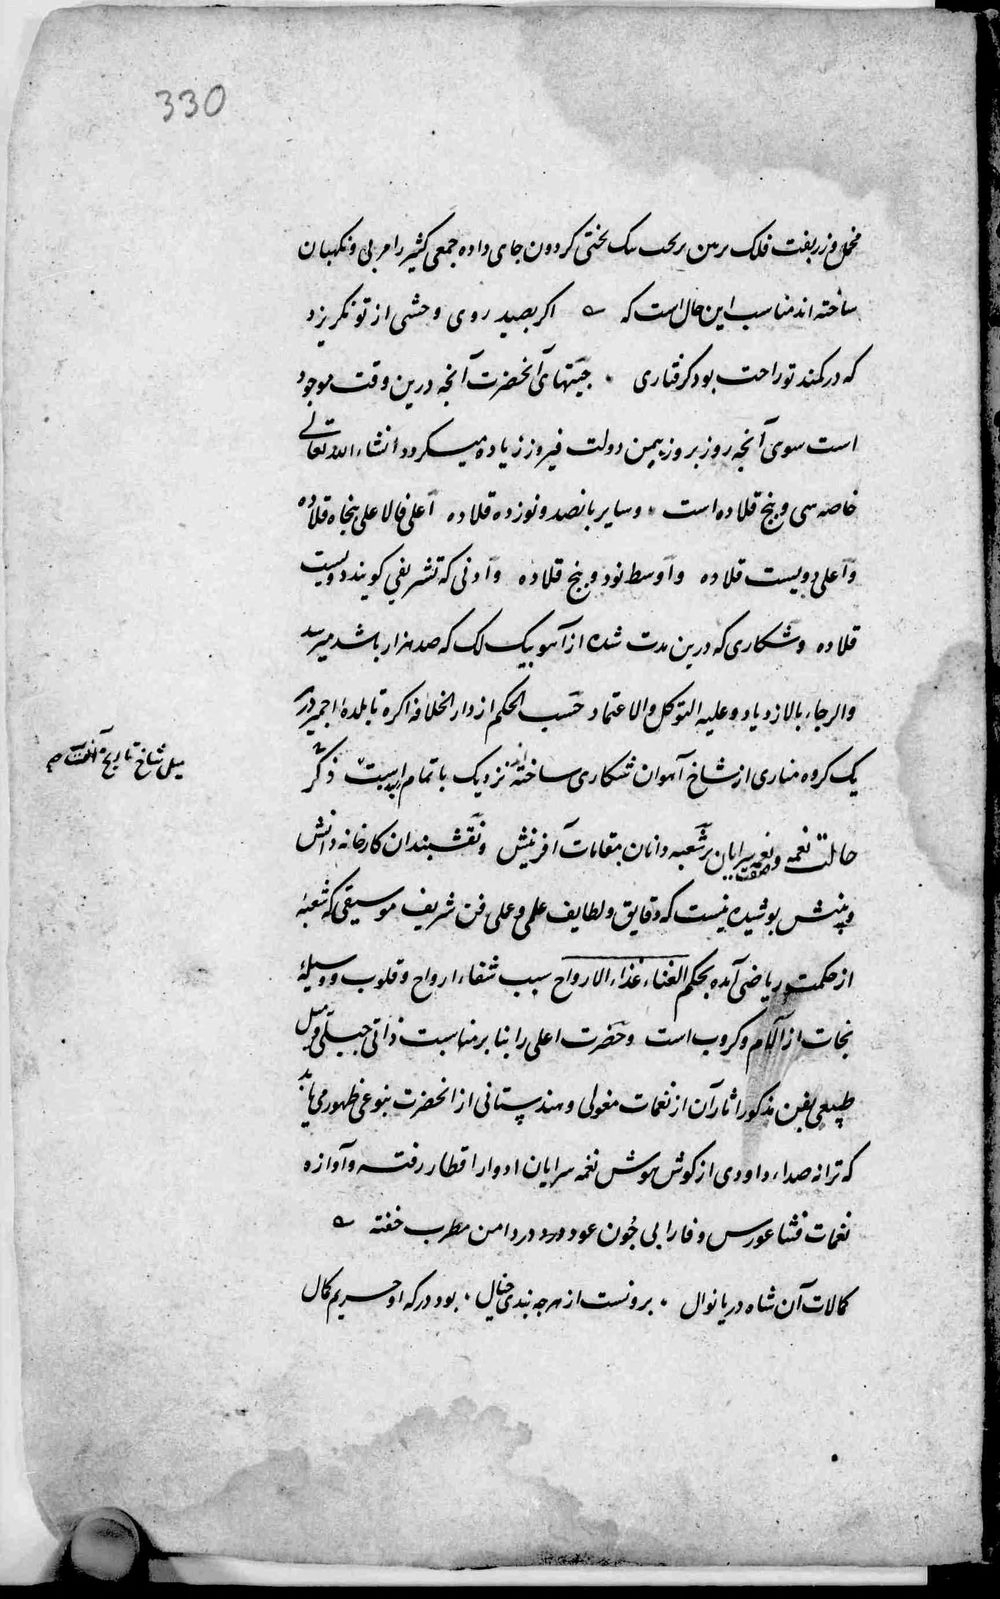 330
مخمل و زربفت فلک برمن بر تخت گردون جای داده جمعی کثیر را مربی و نکهبان
ساخته اند مناسب این حال است که اکر بصید روی وحشی از تو نکریزد
که در کمند تو راحت بود کرفتاری ۰ جیتهای آنحضرت آنچه درین وقت موجود
است سوی آنچه روز بروز بیمن دولت فیروز زیاده میکردد انشاء الله تعالی
خاصه سی و پنج قلاده است ۰ و سایر پانصد و نوزده قلاده اعلی فالاعلی پنجاه قلاده
و اعلی دویست قلاده و اوسط نود و پنج قلاده و ادنی که تشریفی کویند دویست
قلاده و شکاری که درین مدت شده از آهو بیک لک که صد هزار باشد میرسد
والرجاء بالازدیاد و علیه التوکل والاعتماد حسب الحکم از دار الخلافه اکره تا بلده اجمیر در
یک کروه مناری از شاخ آهوان شکاری ساخته اند نزدیک باتمام رسیده است ذکر
حالت نغمه و نغمه سرایان بر شعبه دانان مقامات آفرینش و نقشبندان کارخانه دانش
و بینش پوشیده نیست که دقایق و لطایف علمی و عملی فن شریف موسیقی که شعبهٔ
از حکمت ریاضی آمده بحکم الغناء غذاء الارواح سبب شفاء ارواح و قلوب و وسیلهٔ
نجات از آلام و کروب است و حضرت اعلی را بنا بر مناسبت ذاتی جبلی و میل
طبیعی بفن مذکور اثار آن از نغمات مغولی و هندوستانی از انحضرت بنوعی ظهور می یابد
که ترانه صداء داودی از کوش هوش نغمه سرایان ادوار اقطار رفته و آوازه
نغمات فیثاغورس و فارابی چون عود و رود در دامن مطرب خفته
کمالات آن شاه دریا نوال ۰ برونست از هرچه بندی خیال ۰ بود درکه او حریم کمال
میل شاخ تاریخ